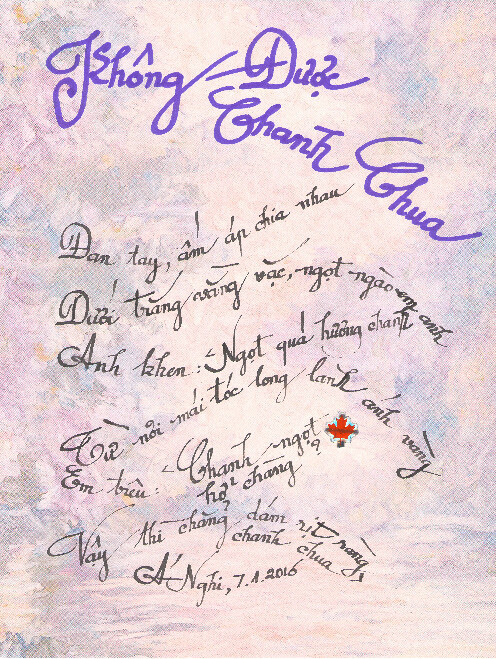 Không Được
Chanh
Chua
Đan tay, ấm áp chia nhau
Dưới trăng vằng vặc, ngọt ngào em anh
Anh khen: "Ngọt quá hương chanh
Từ nơi mái tóc long lanh ánh vàng
Em trêu: "Chanh ngọt
hở chàng
Vậy thì chẳng dám rịt ràng,
chanh chua
Á Nghi, 7.1.2016